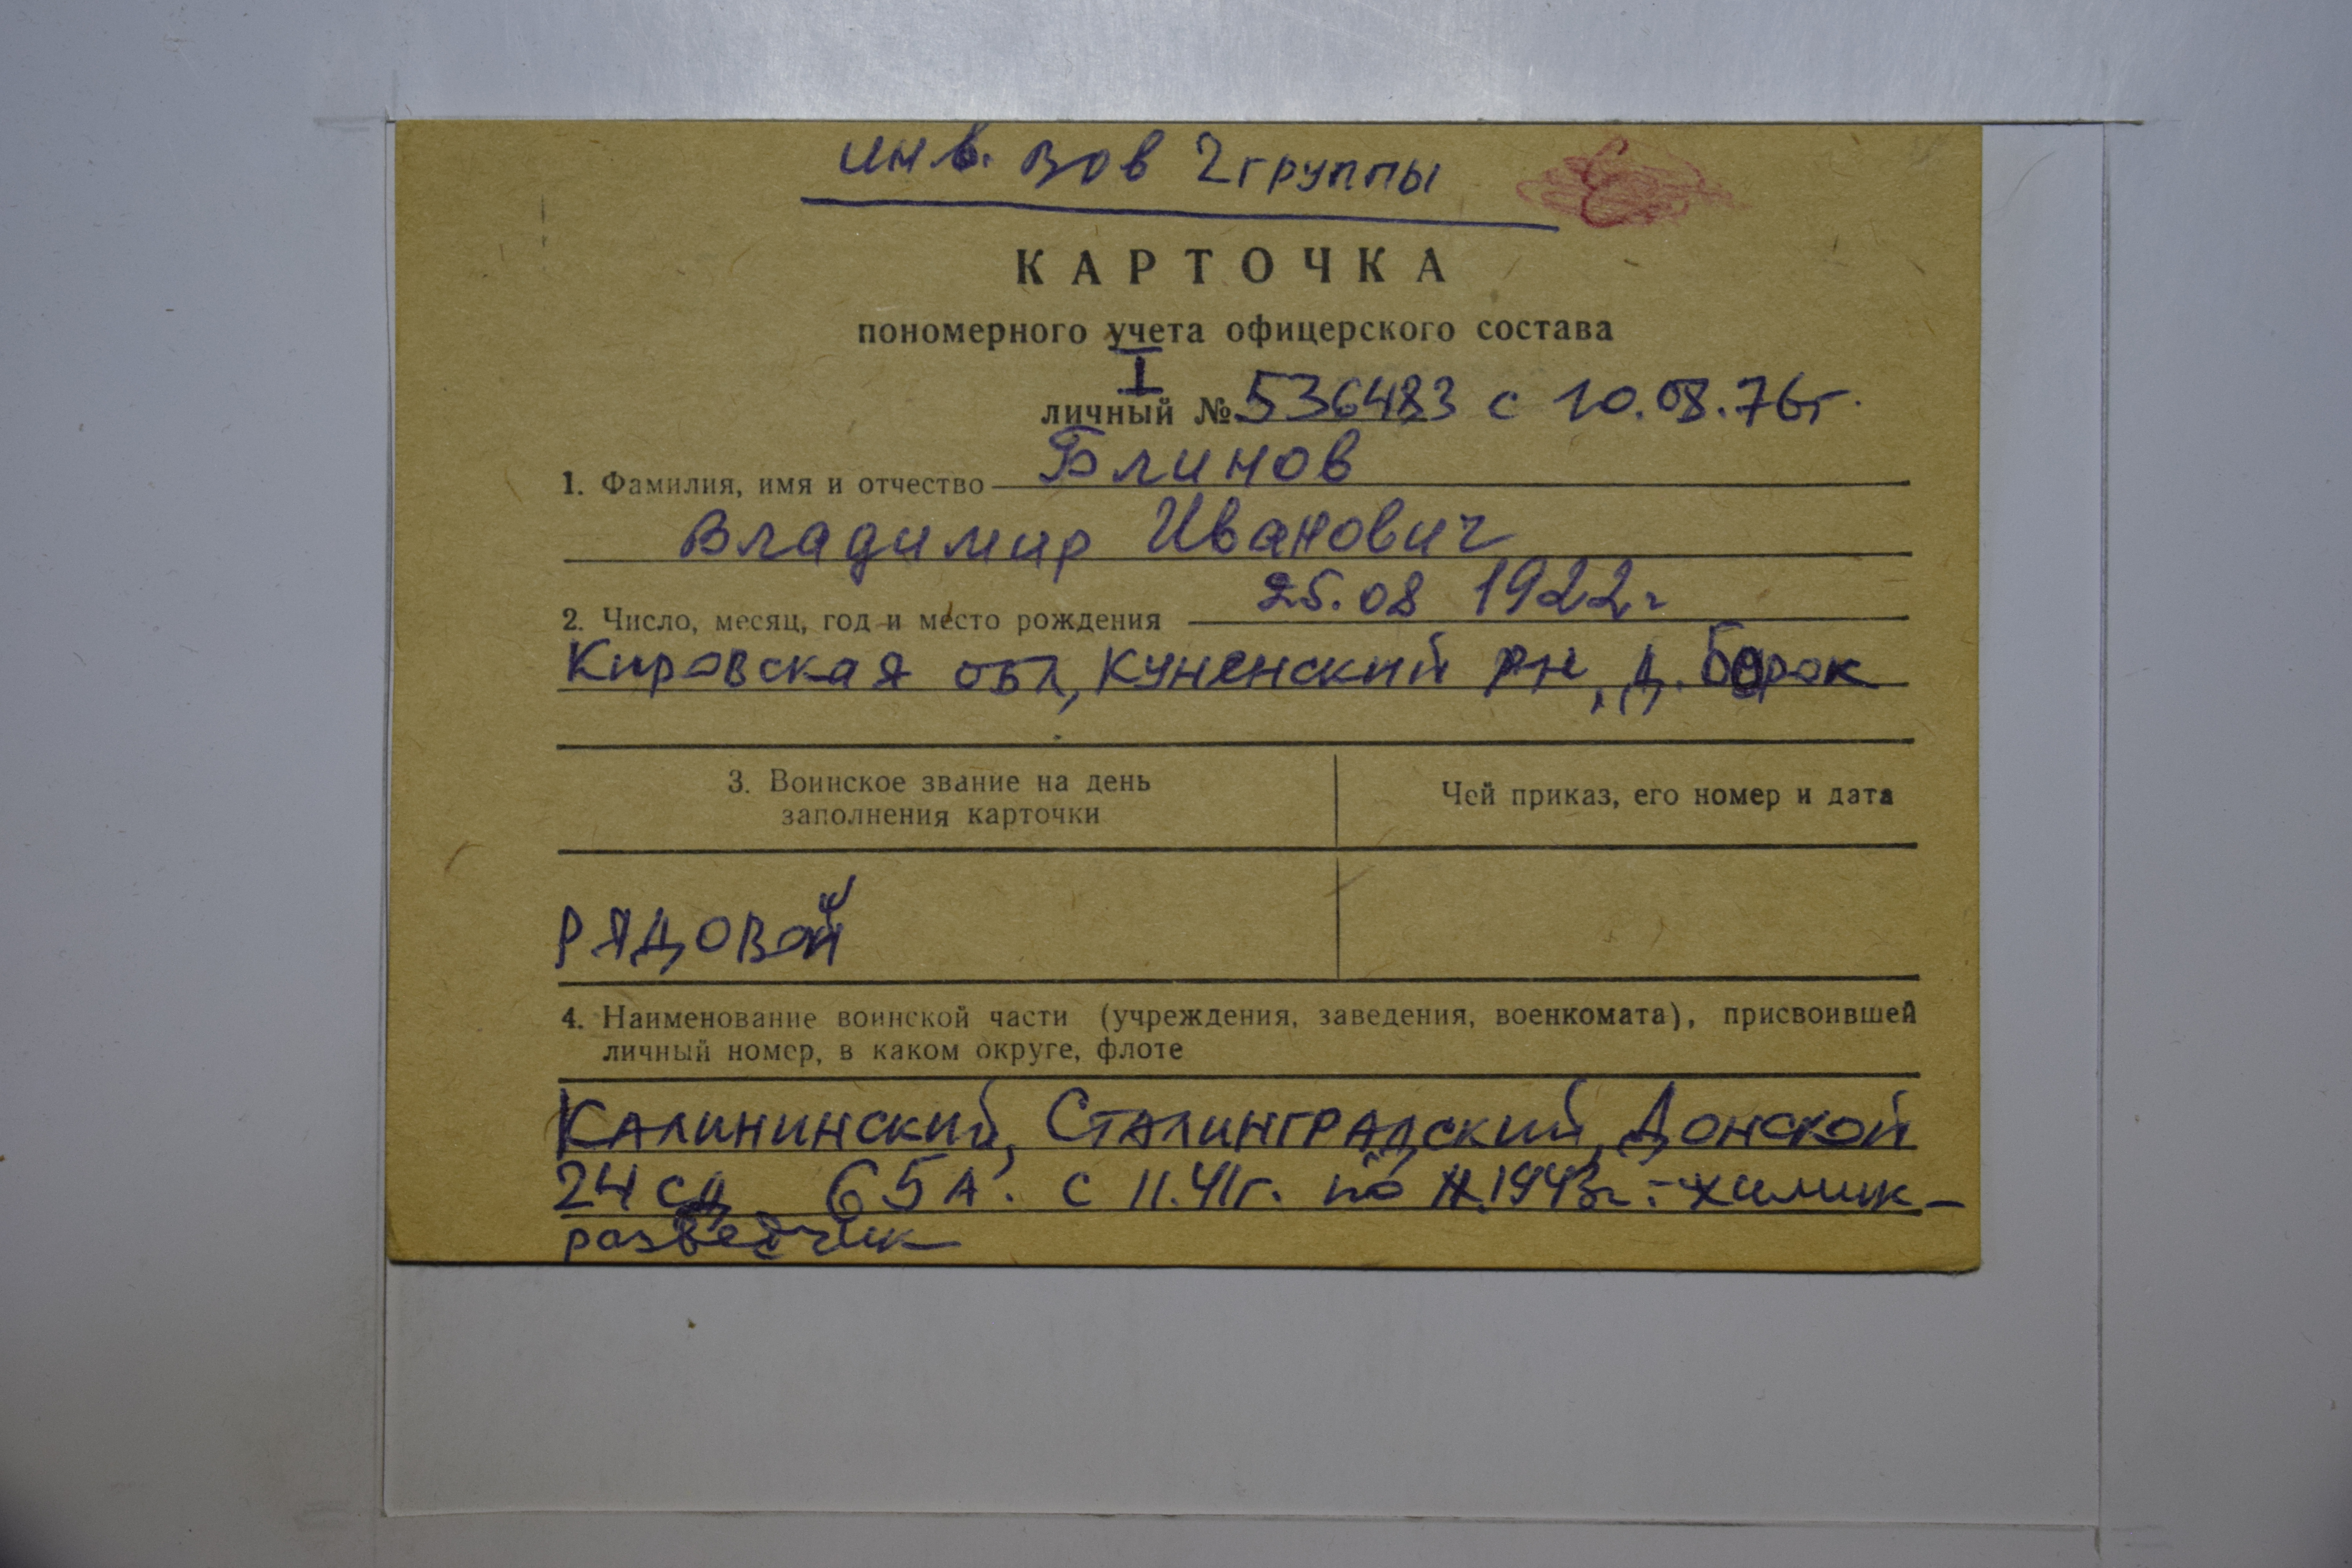 инв. ВОВ 2 группы
КАРТОЧКА
пономерного учета офицерского состава
I
личный № 536483 с 10.08.76г.
1. Фамилия, имя и отчество Блинов
Владимир Иванович
2. Число, месяц, год и место рождения 25.08 1922г
Кировская обл, Куменский рн, д. Борок
3. Воинское звание на день
заполнения карточки
Чей приказ, его номер и дата
РЯДОВОЙ
4. Наименование воинской части (учреждения, заведения, военкомата), присвоившей
личный номер, в каком округе, флоте
Калининский, Сталинградский, Донской
24 сд 65А. с 11.41г. по 1943г. - химик-
разведчик